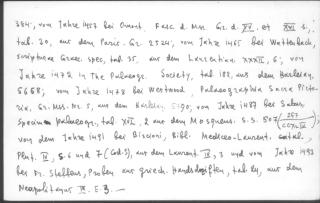 384, vom Jahre 1457 bei Omont. Facs. d. Mss. Gr. d. XV. et XVI. s.,
tab. 30, aus dem Paris. Gr. 2524, vom Jahre 1465 bei Wattenbach,
scripturae Graec. spec. tab. 35, aus dem Laurentian. XXXII, 6, vom
Jahre 1472 in The Palaeogr. Society, tab. 182, aus dem Harleian.
5668, vom Jahre 1478 bei Westwood, Palaeographia Sacra Picto-
ria, Gr. Mss. Nr. 5, aus dem Harleian. 5790, vom Jahre 1487 bei Sabas,
Specim. palaeogr. tab. XII, 2 aus dem Mosquens. S. S. 507 (
vom dem Jahre 1491 bei Biscioni, Bibl. Mediceo-Laurent. catal.,
Plut. IV, S. 6 und 7 aus dem Laurent. IV, 3 und vom Jahre 1493
bei Fr. Steffens, Proben aus griech. Handschriften, tab. 24, aus dem
Neapolitanus III. E.